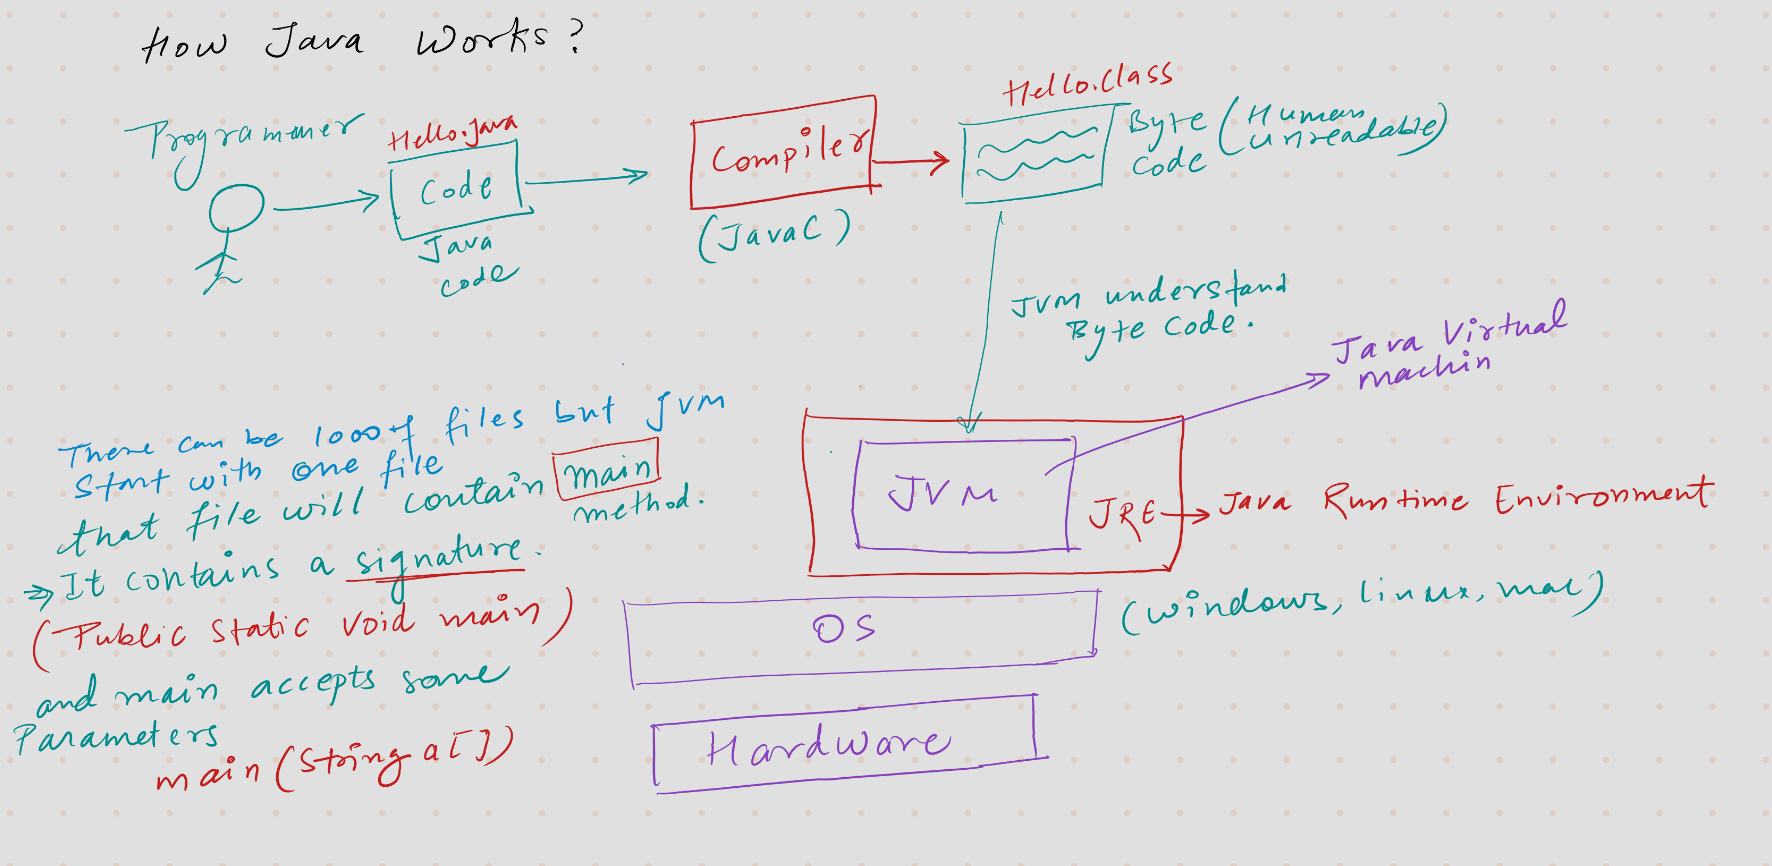 How Java Works?
Programmer
Hello.java
Code
Java
code
Compiler
(JavaC)
Hello.Class
Byte
code
(Human
unreadable)
JVM understand
Byte Code.
Java Virtual
machin
JVM
JRE
Java Runtime Environment
OS
(windows, linux, mac)
Hardware
There can be 1000 of files but JVM
Start with one file
that file will contain main
method.
It contains a signature.
(Public Static Void main)
and main accepts some
Parameters
main (String a[])